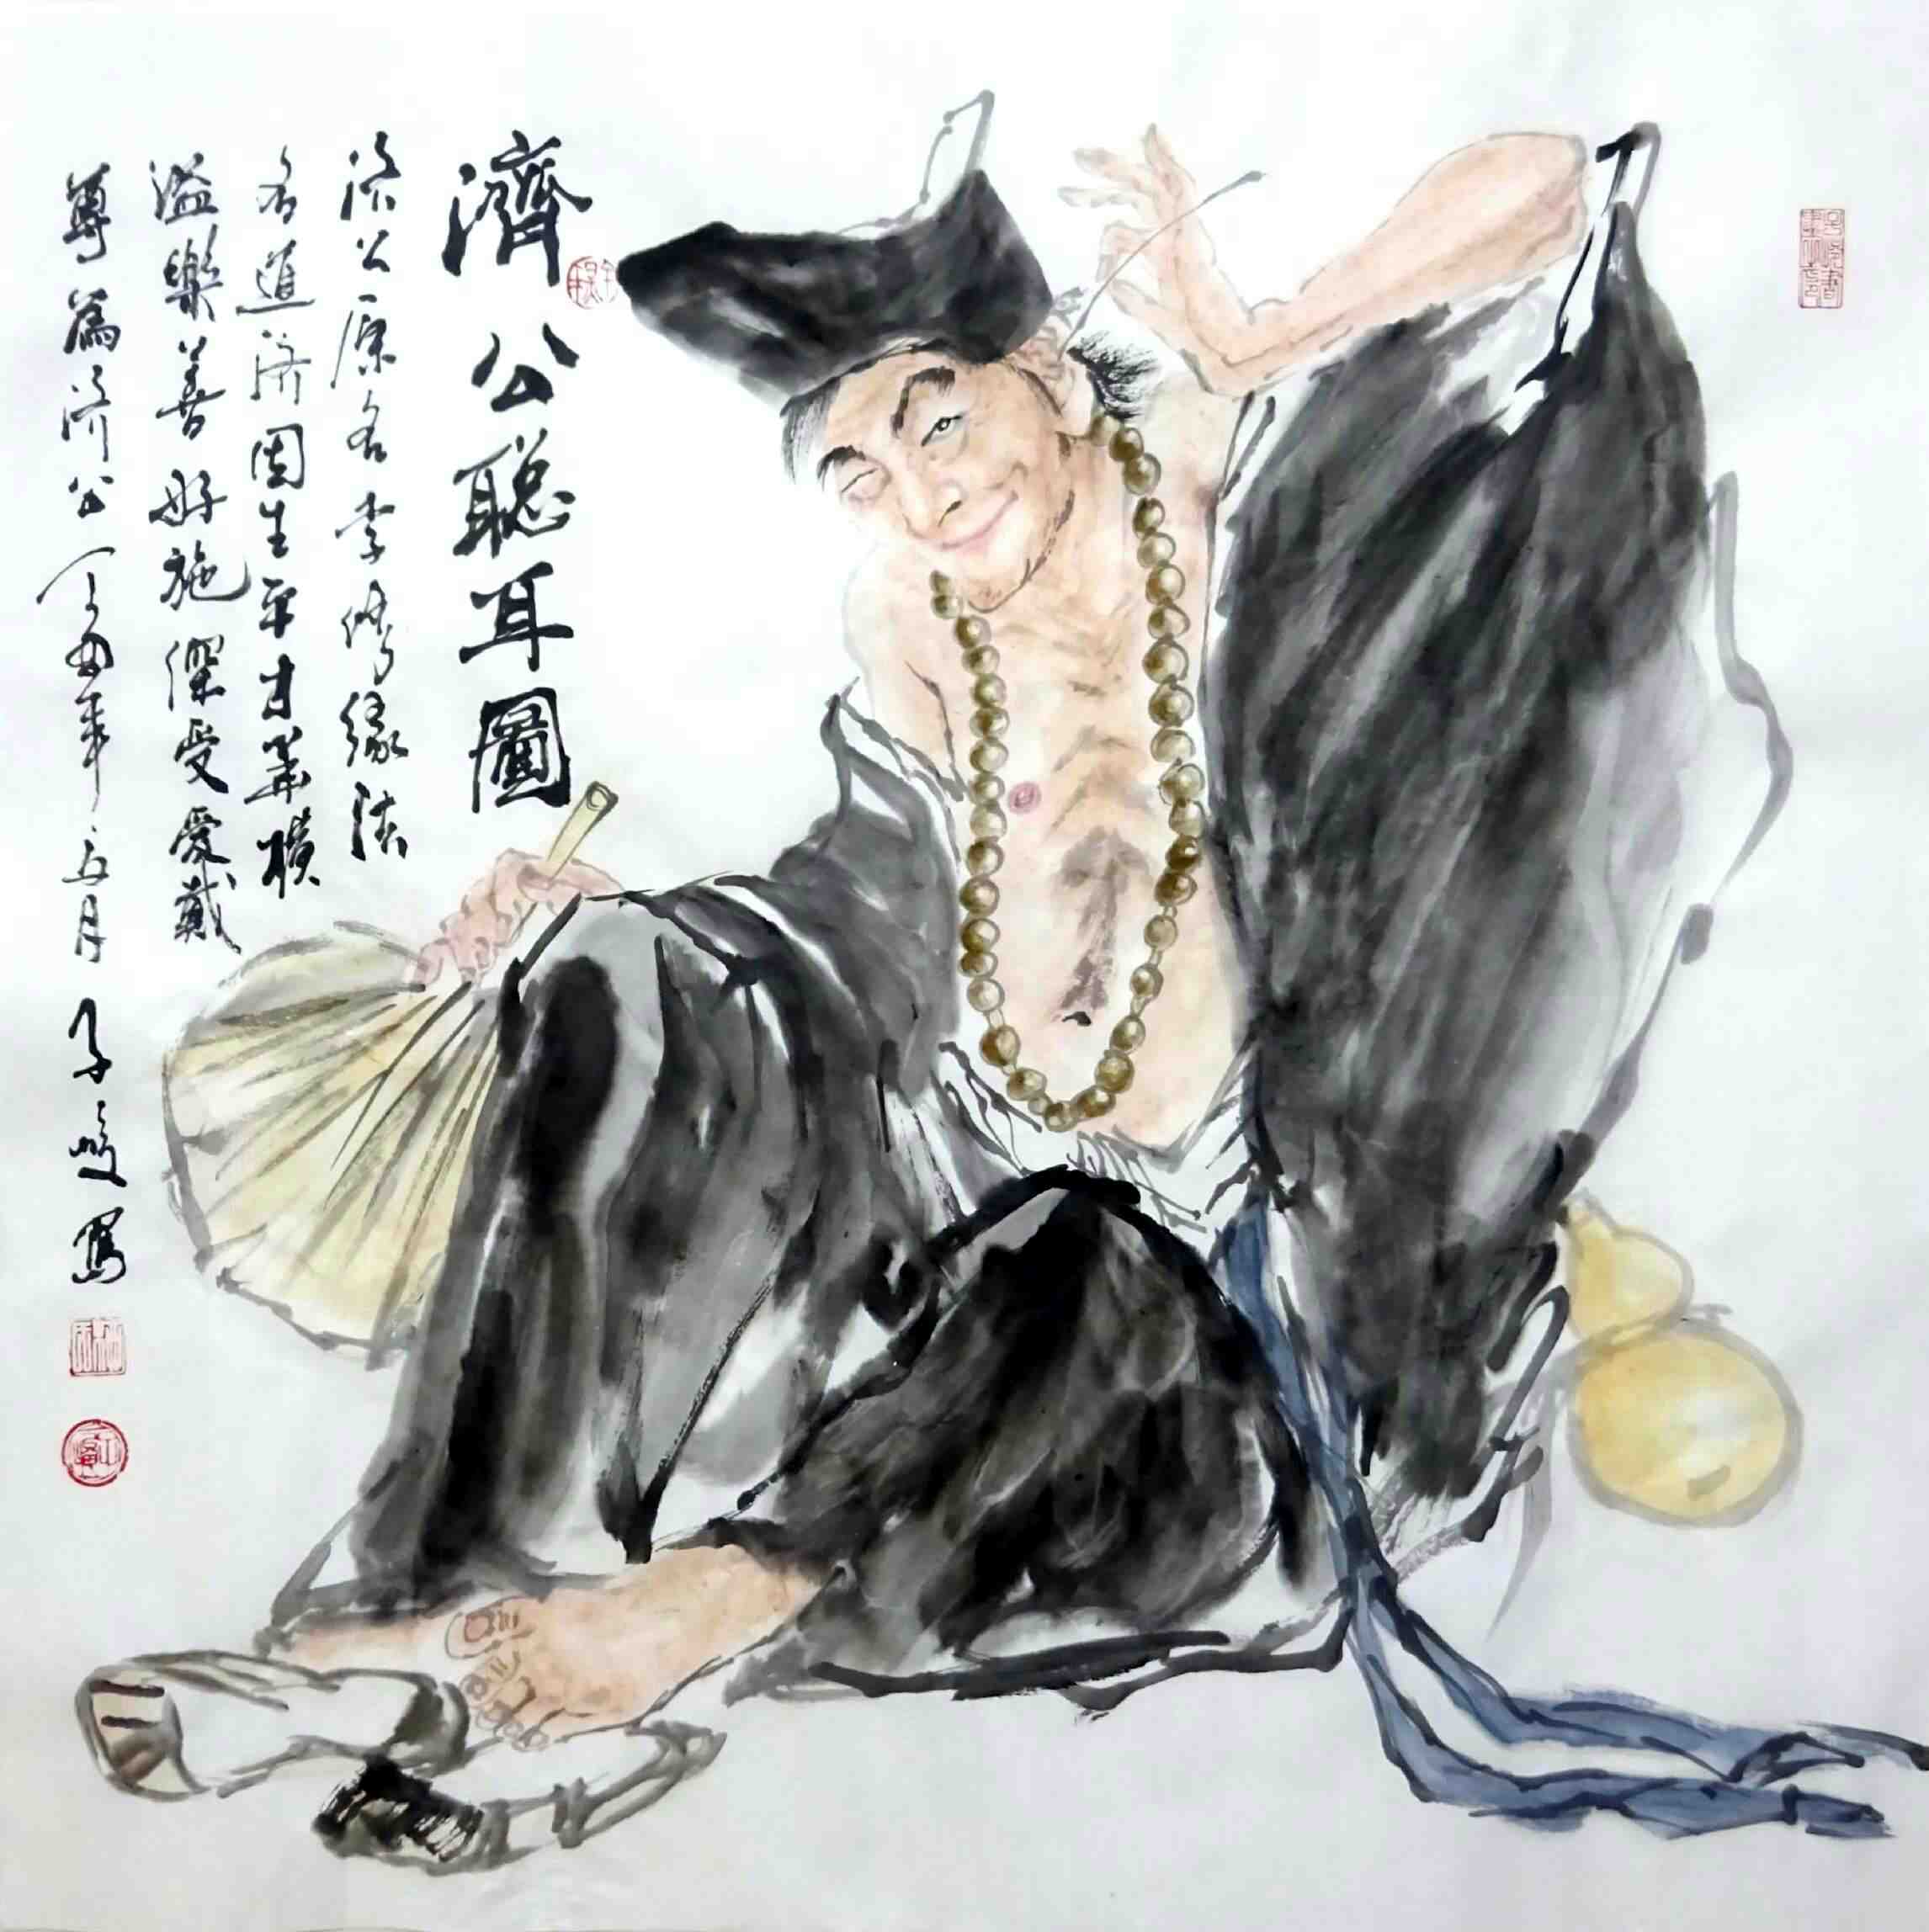 濟公聰耳圖
济公原名李修缘法
名道济因生平才華横
溢樂善好施深受愛戴
尊為济公丁酉年五月子峻寫